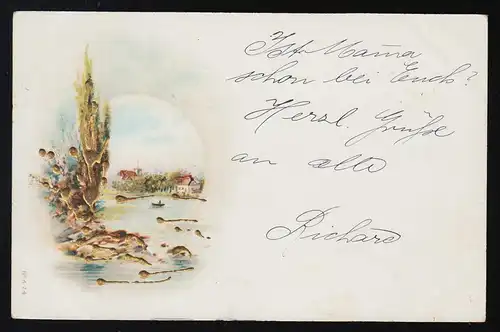 Ist Mama
schon bei Euch?
Herzl. Grüße
an alle
Richard